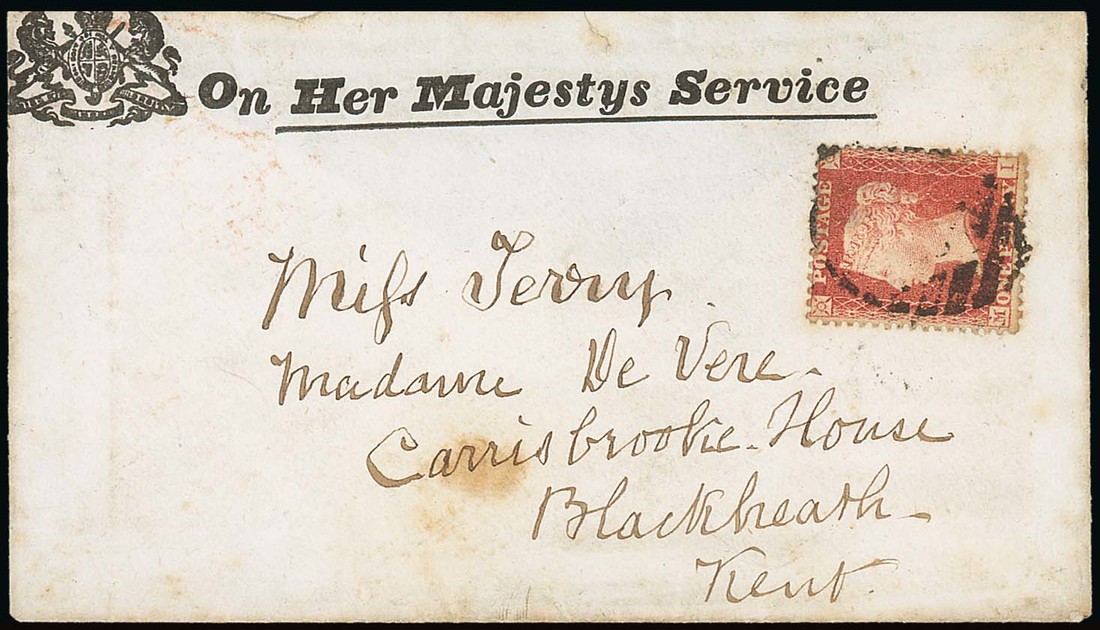 On Her Majestys Service
POSTAGE
ONE PENNY
I
M
Miss Terry.
Madame De Vere.
Carrisbrooke House
Blackheath
Kent.